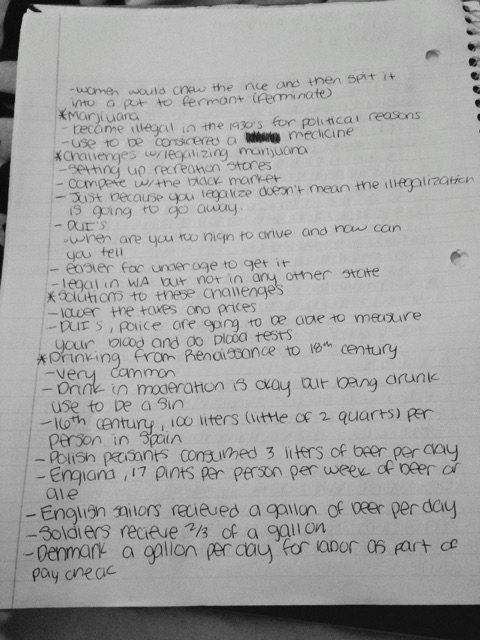 -women would chew the rice and then spit it
into a pot to fermant (ferminate)
*Marijuana
-became illegal in the 1930's for political reasons
-use to be considered a medicine
*Challenges w/legalizing marijuana
-setting up recreation stores
-compete w/the black market
-Just because you legalize doesn't mean the illegalization
is going to go away.
-DUI's
-when are you too high to drive and how can
you tell
-easier for underage to get it
-legal in WA but not in any other state
*solutions to these challenges
-lower the taxes and prices
-DUI's, police are going to be able to measure
your blood and do blood tests
*Drinking from Renaissance to 18th century
-very common
-Drink in moderation is okay but being drunk
use to be a sin
-16th century, 100 liters (little of 2 quarts) per
person in Spain
-Polish peasants consumed 3 liters of beer per day
-England, 17 pints per person per week of beer or
ale
-English sailors recieved a gallon of beer per day
-Soldiers recieve 2/3 of a gallon
-Denmark a gallon per day for labor as part of
pay check